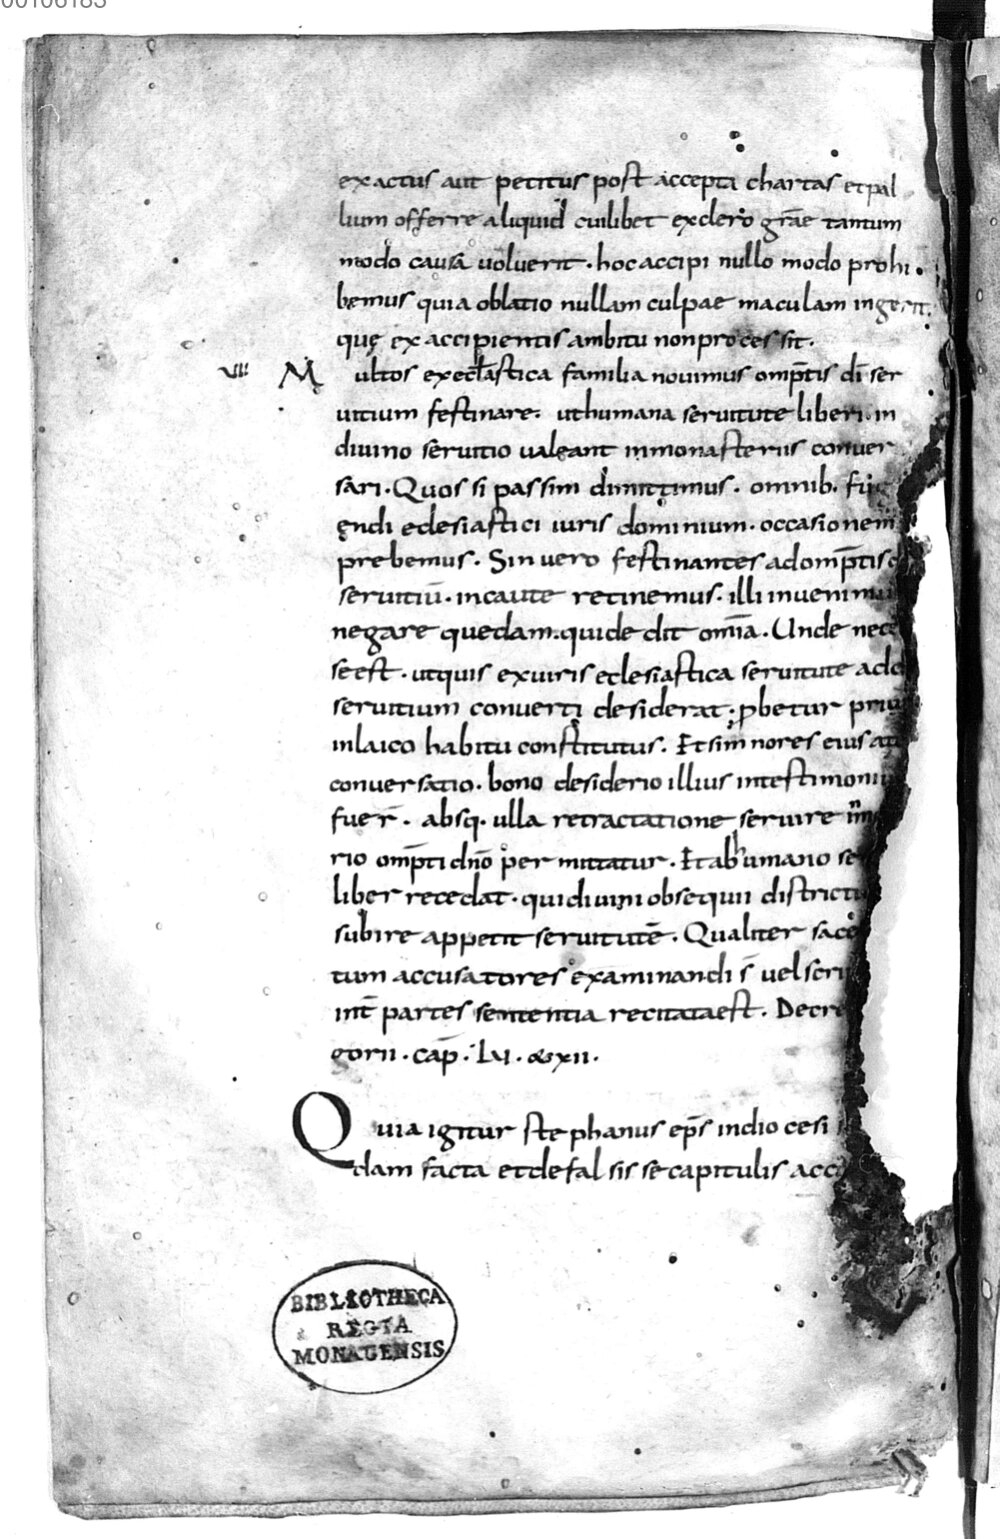 00106183
exactus aut petitus post accepta chartas et pal
lium offerre aliquid cuilibet exclero grae tantum
modo causā voluerit · hoc accipi nullo modo prohi
bemus quia oblatio nullam culpae maculam ingerit.
quę ex accipientis ambitu non processit.
VIII Multos ex eclastica familia novimus omptis dī ser
vitium festinare. ut humana servitute liberi in
divino servitio valeant in monasteriis conver
sari · Quos si passim dimittimus · omnib.
endi eclesiastici iuris dominium · occasionem
prebemus · Sin vero festinantes ad omp̄tis
servitiū · incaute retinemus · illi invenimu
negare quedam. qui dedit omīa · Unde nece
se est · ut quis ex viris eclesiastica servitute ad
servitium converti desiderat · pbetur priu
in laico habitu constitutus. Et si mores eius
conversatio · bono desiderio illius in testimoni
fuer̄ · absq · ulla retractatione servire
rio omp̄ti dn̄o permittatur · Et ab humano se
liber recedat · qui divini obsequii districtu
subire appetit servitutē · Qualiter sace
tum accusatores examinandi s̄ vel scri
int̄ partes sententia recitata est · Decre
gorii · cap̄ · LVI · & XII ·
Quia igitur stephanus ep̄s in dio cesi
dam facta et de falsis se capitulis acc
BIBLIOTHECA
REGIA
MONACENSIS